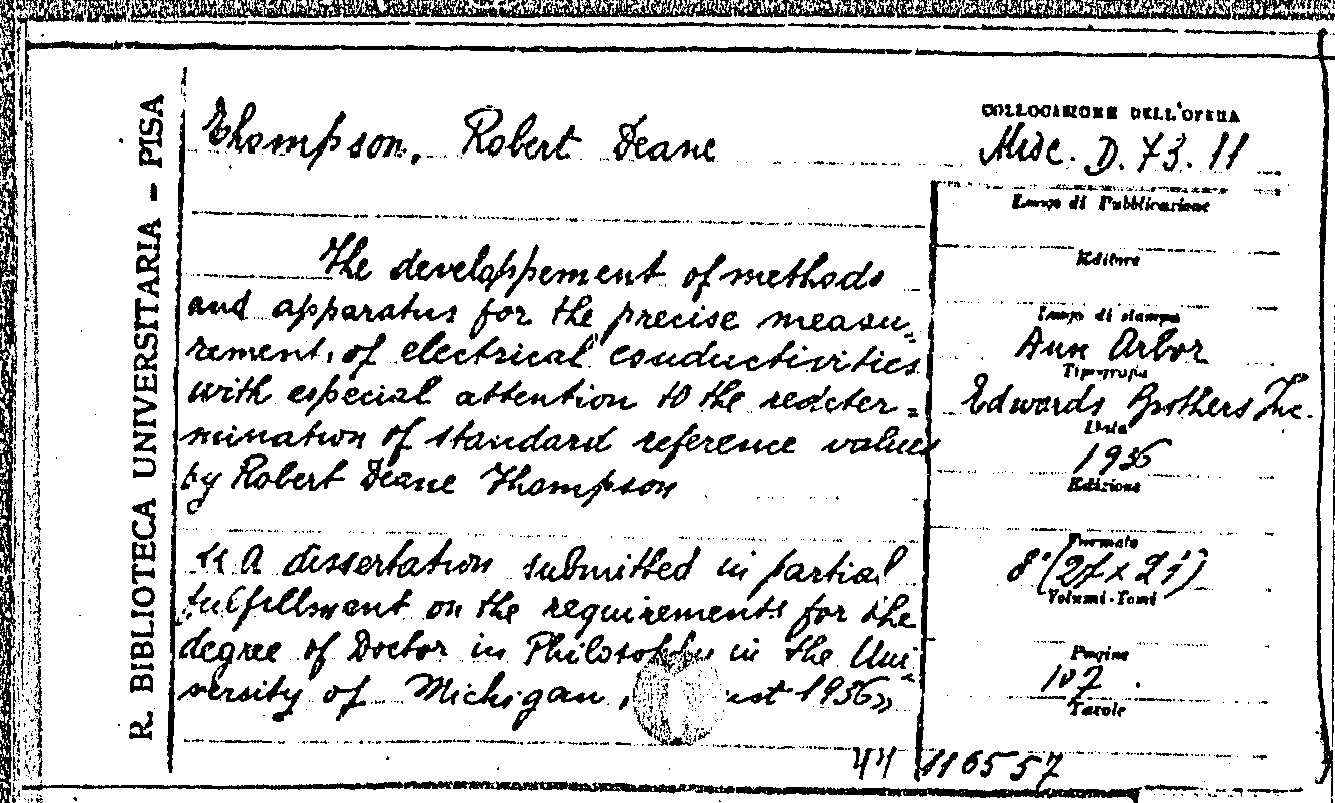 R. BIBLIOTECA UNIVERSITARIA - PISA
Thompson, Robert Deane
The developpement of methods
and apparatus for the precise measu=
rement, of electrical conductivities
with especial attention to the redeter=
mination of standard reference values
by Robert Deane Thompson
« A dissertation submitted in partial
fulfillment on the requirements for the
degree of Doctor in Philosophy in the Uni=
versity of Michigan, 1936»
COLLOCAZIONE DELL'OPERA
Misc. D. 73. 11
Luogo di Pubblicazione
Editore
Luogo di stampa
Ann Arbor
Tipografia
Edwards Brothers Inc.
Data
1936
Edizione
Formato
8° (27 x 21)
Volumi-Tomi
Pagine
107.
Tavole
44 116557